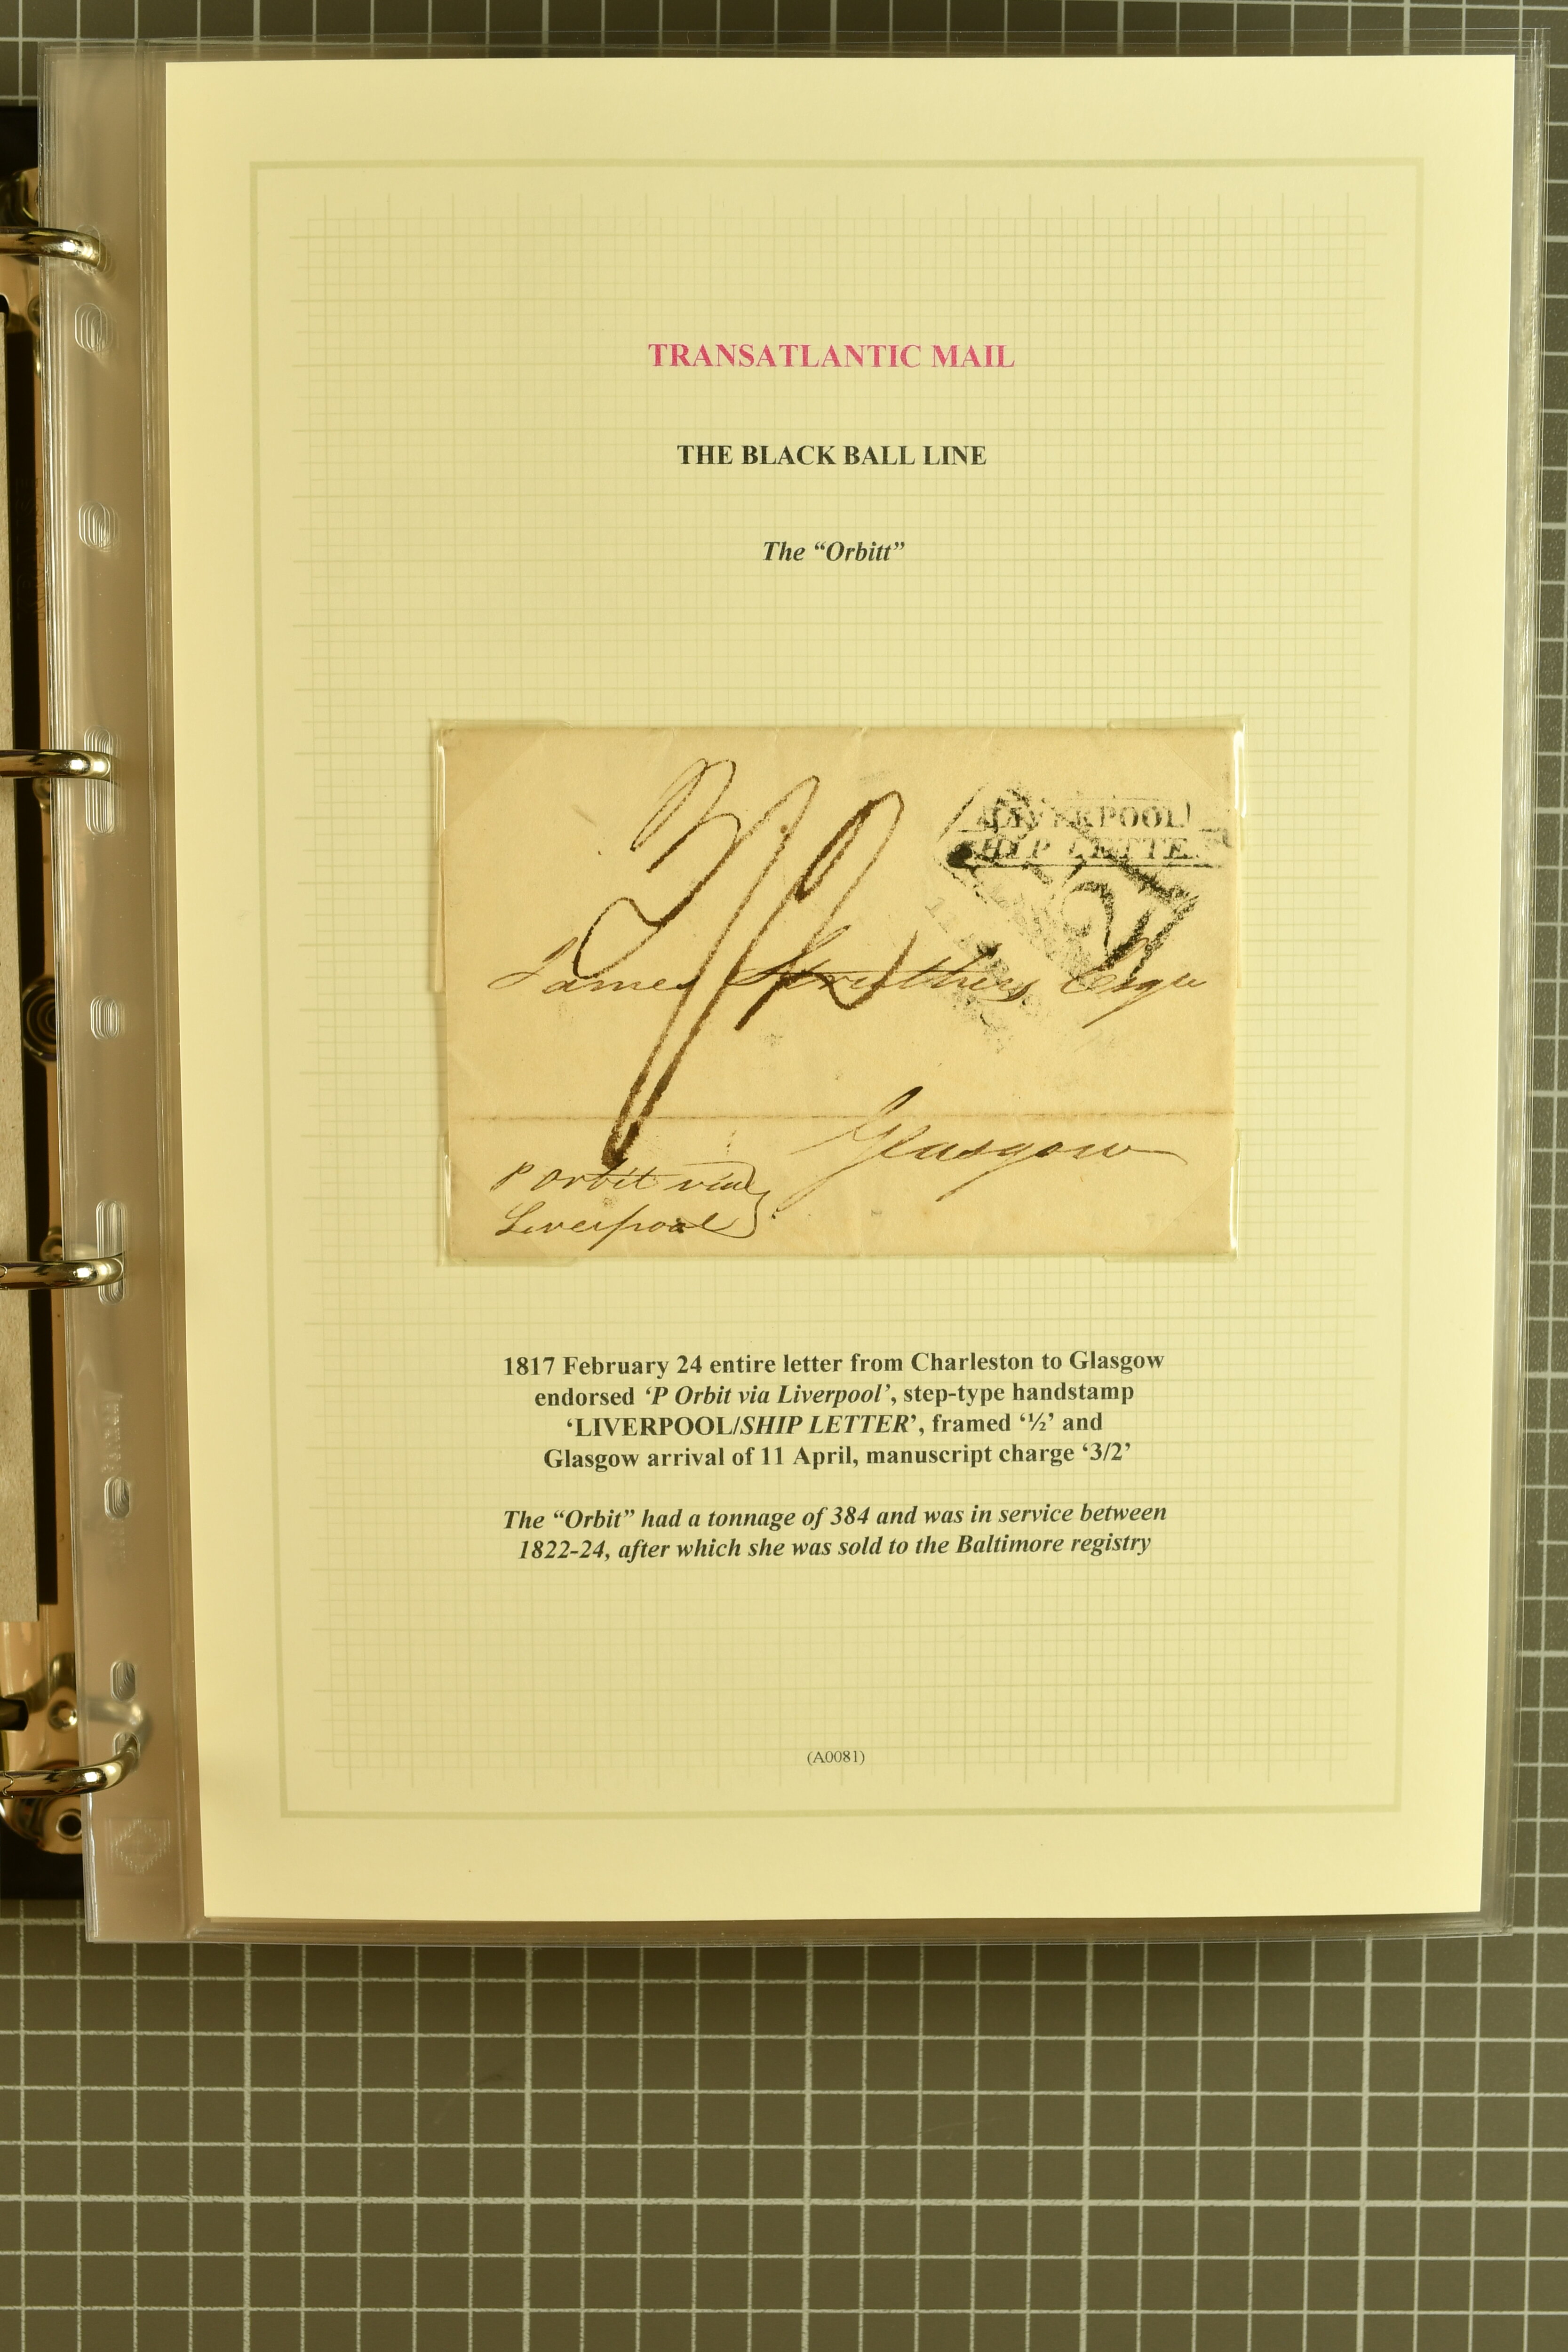 TRANSATLANTIC MAIL
THE BLACK BALL LINE
The “Orbitt”
LIVERPOOL
SHIP LETTER
3/2
James Struthers Esqr
Glasgow
P Orbit via
Liverpool
1817 February 24 entire letter from Charleston to Glasgow
endorsed ‘P Orbit via Liverpool’, step-type handstamp
‘LIVERPOOL/SHIP LETTER’, framed ‘½’ and
Glasgow arrival of 11 April, manuscript charge ‘3/2’
The “Orbit” had a tonnage of 384 and was in service between
1822-24, after which she was sold to the Baltimore registry
(A0081)